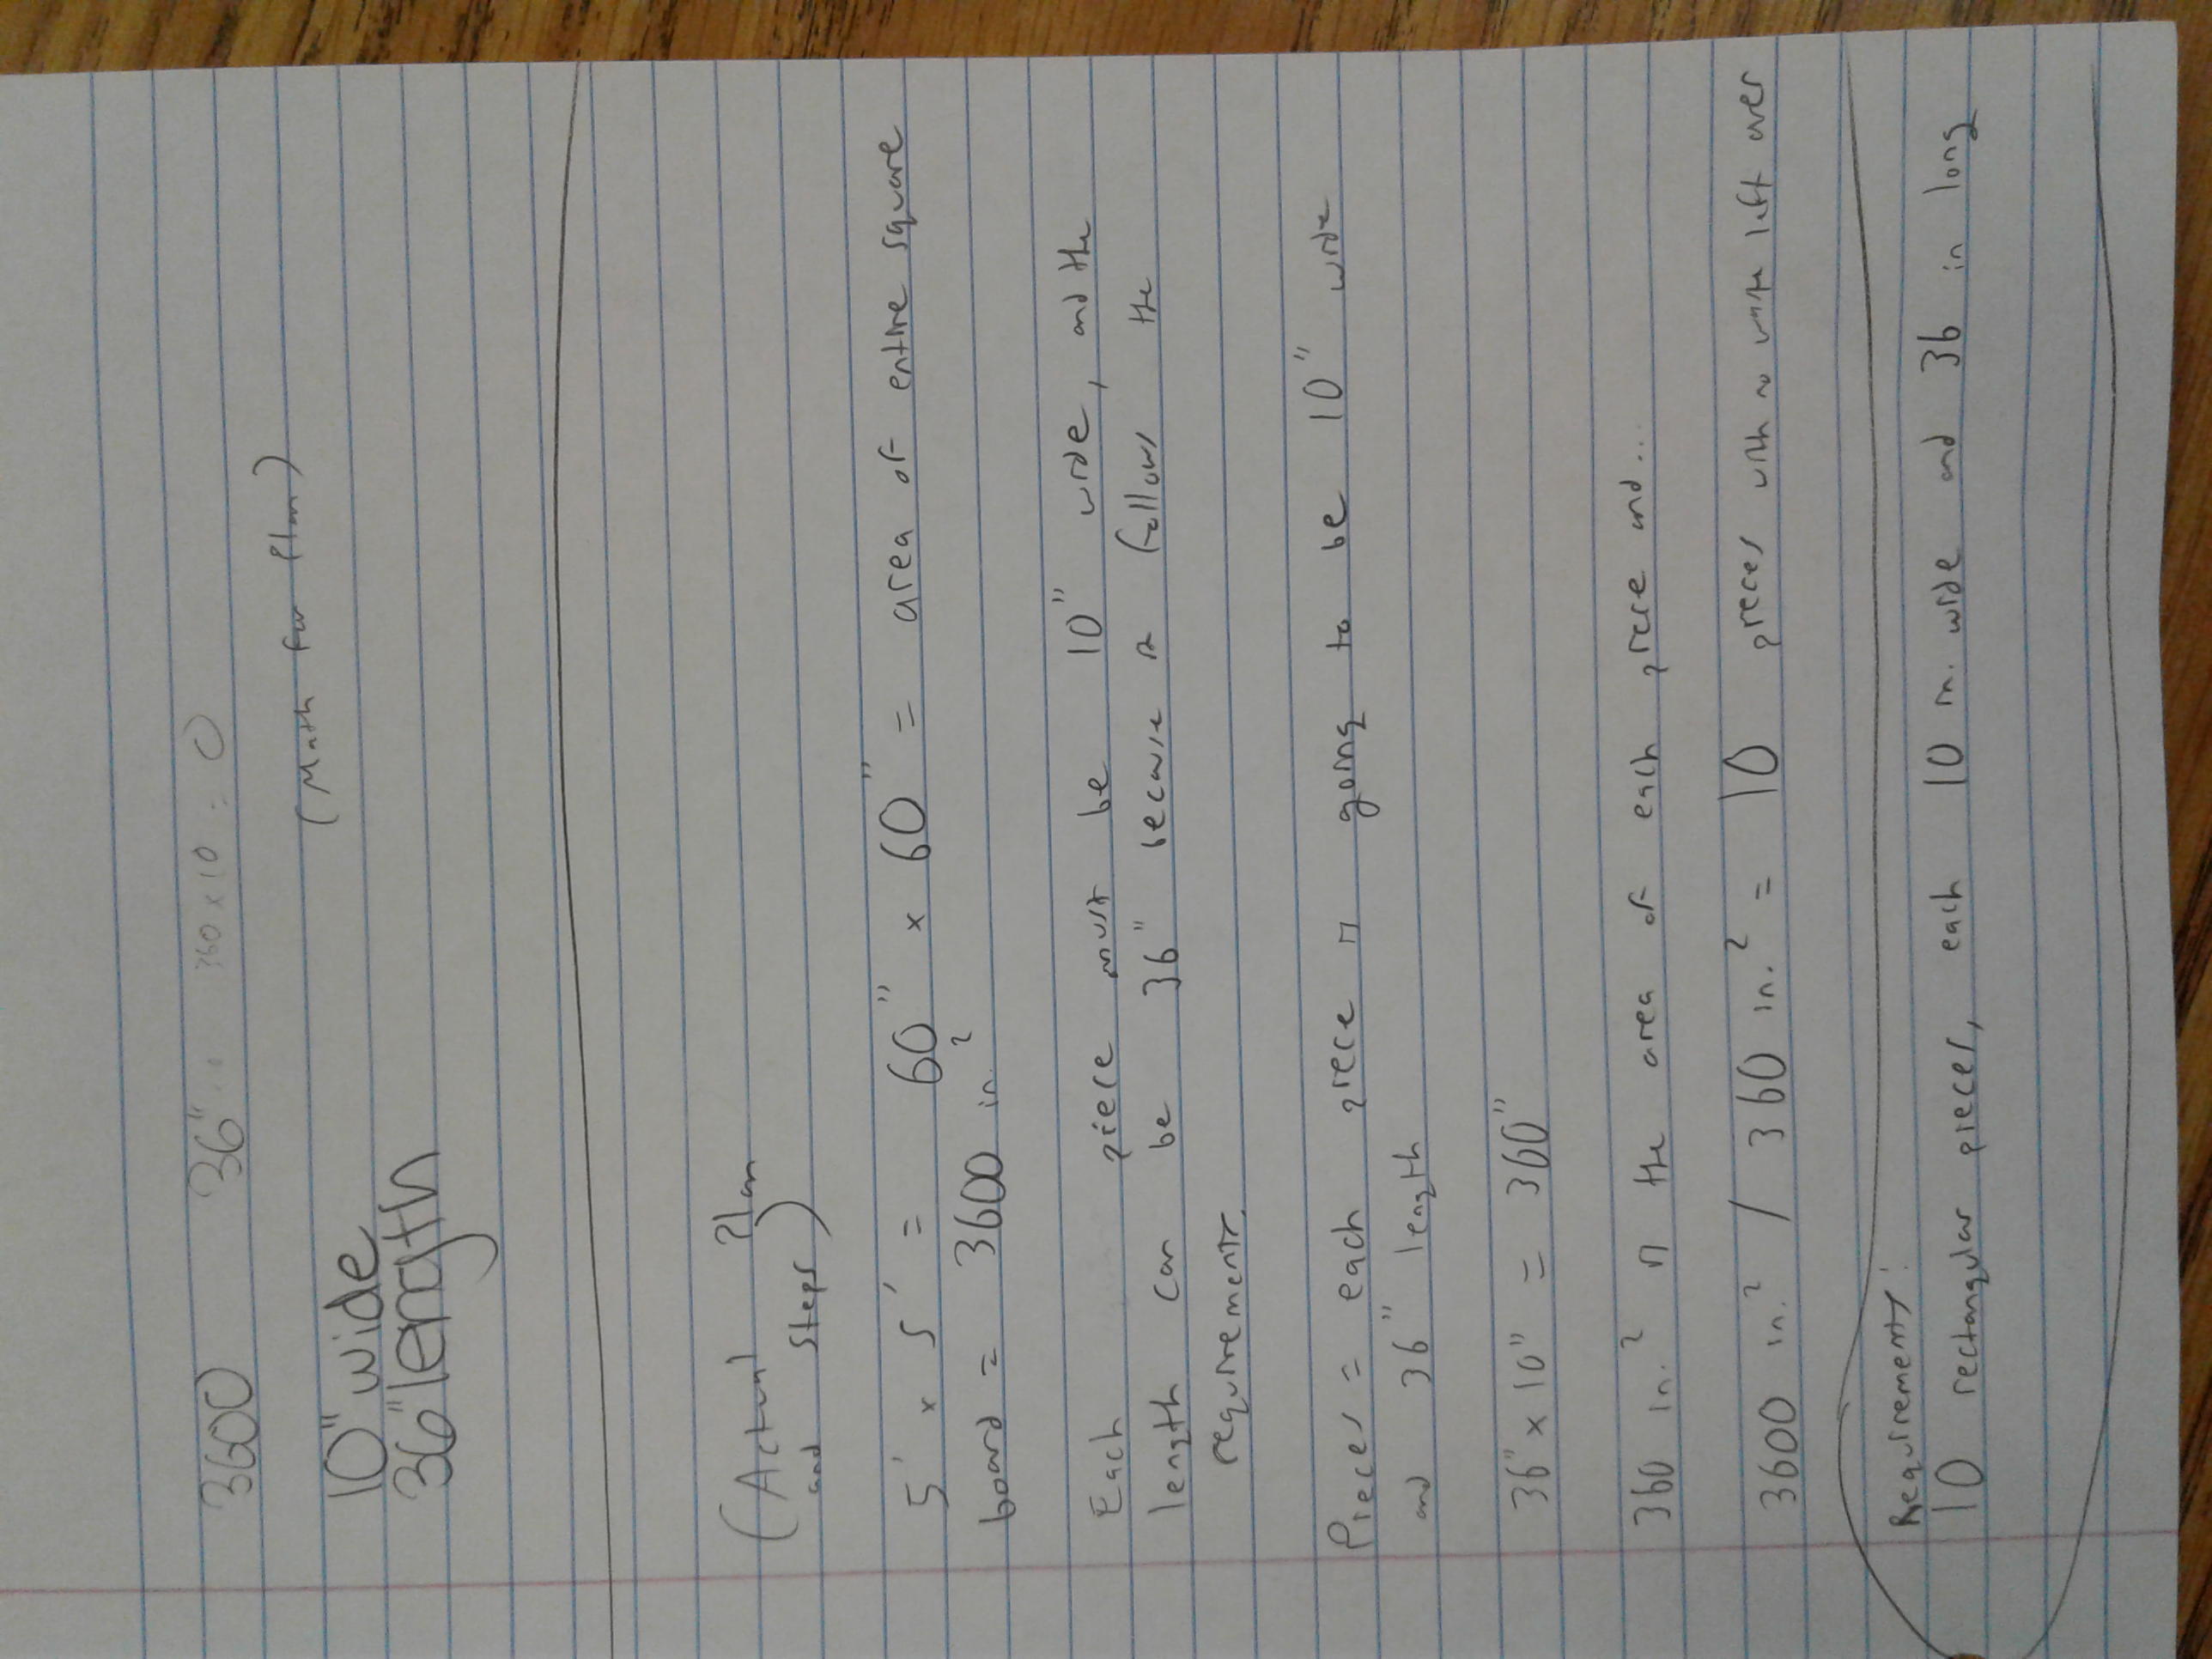 3600 36" 360 x 10 = 0
(Math for Plan)
10" wide
36" length
(Actual Plan
and Steps)
5' x 5' = 60" x 60" = area of entire square
board = 3600 in.²
Each piece must be 10" wide, and the
length can be 36" because it follows the
requirements.
Pieces = each piece is going to be 10" wide
and 36" length
36" x 10" = 360"
360 in.² is the area of each piece and...
3600 in.² / 360 in.² = 10 pieces with no waste left over
Requirements:
10 rectangular pieces, each 10 in. wide and 36 in long